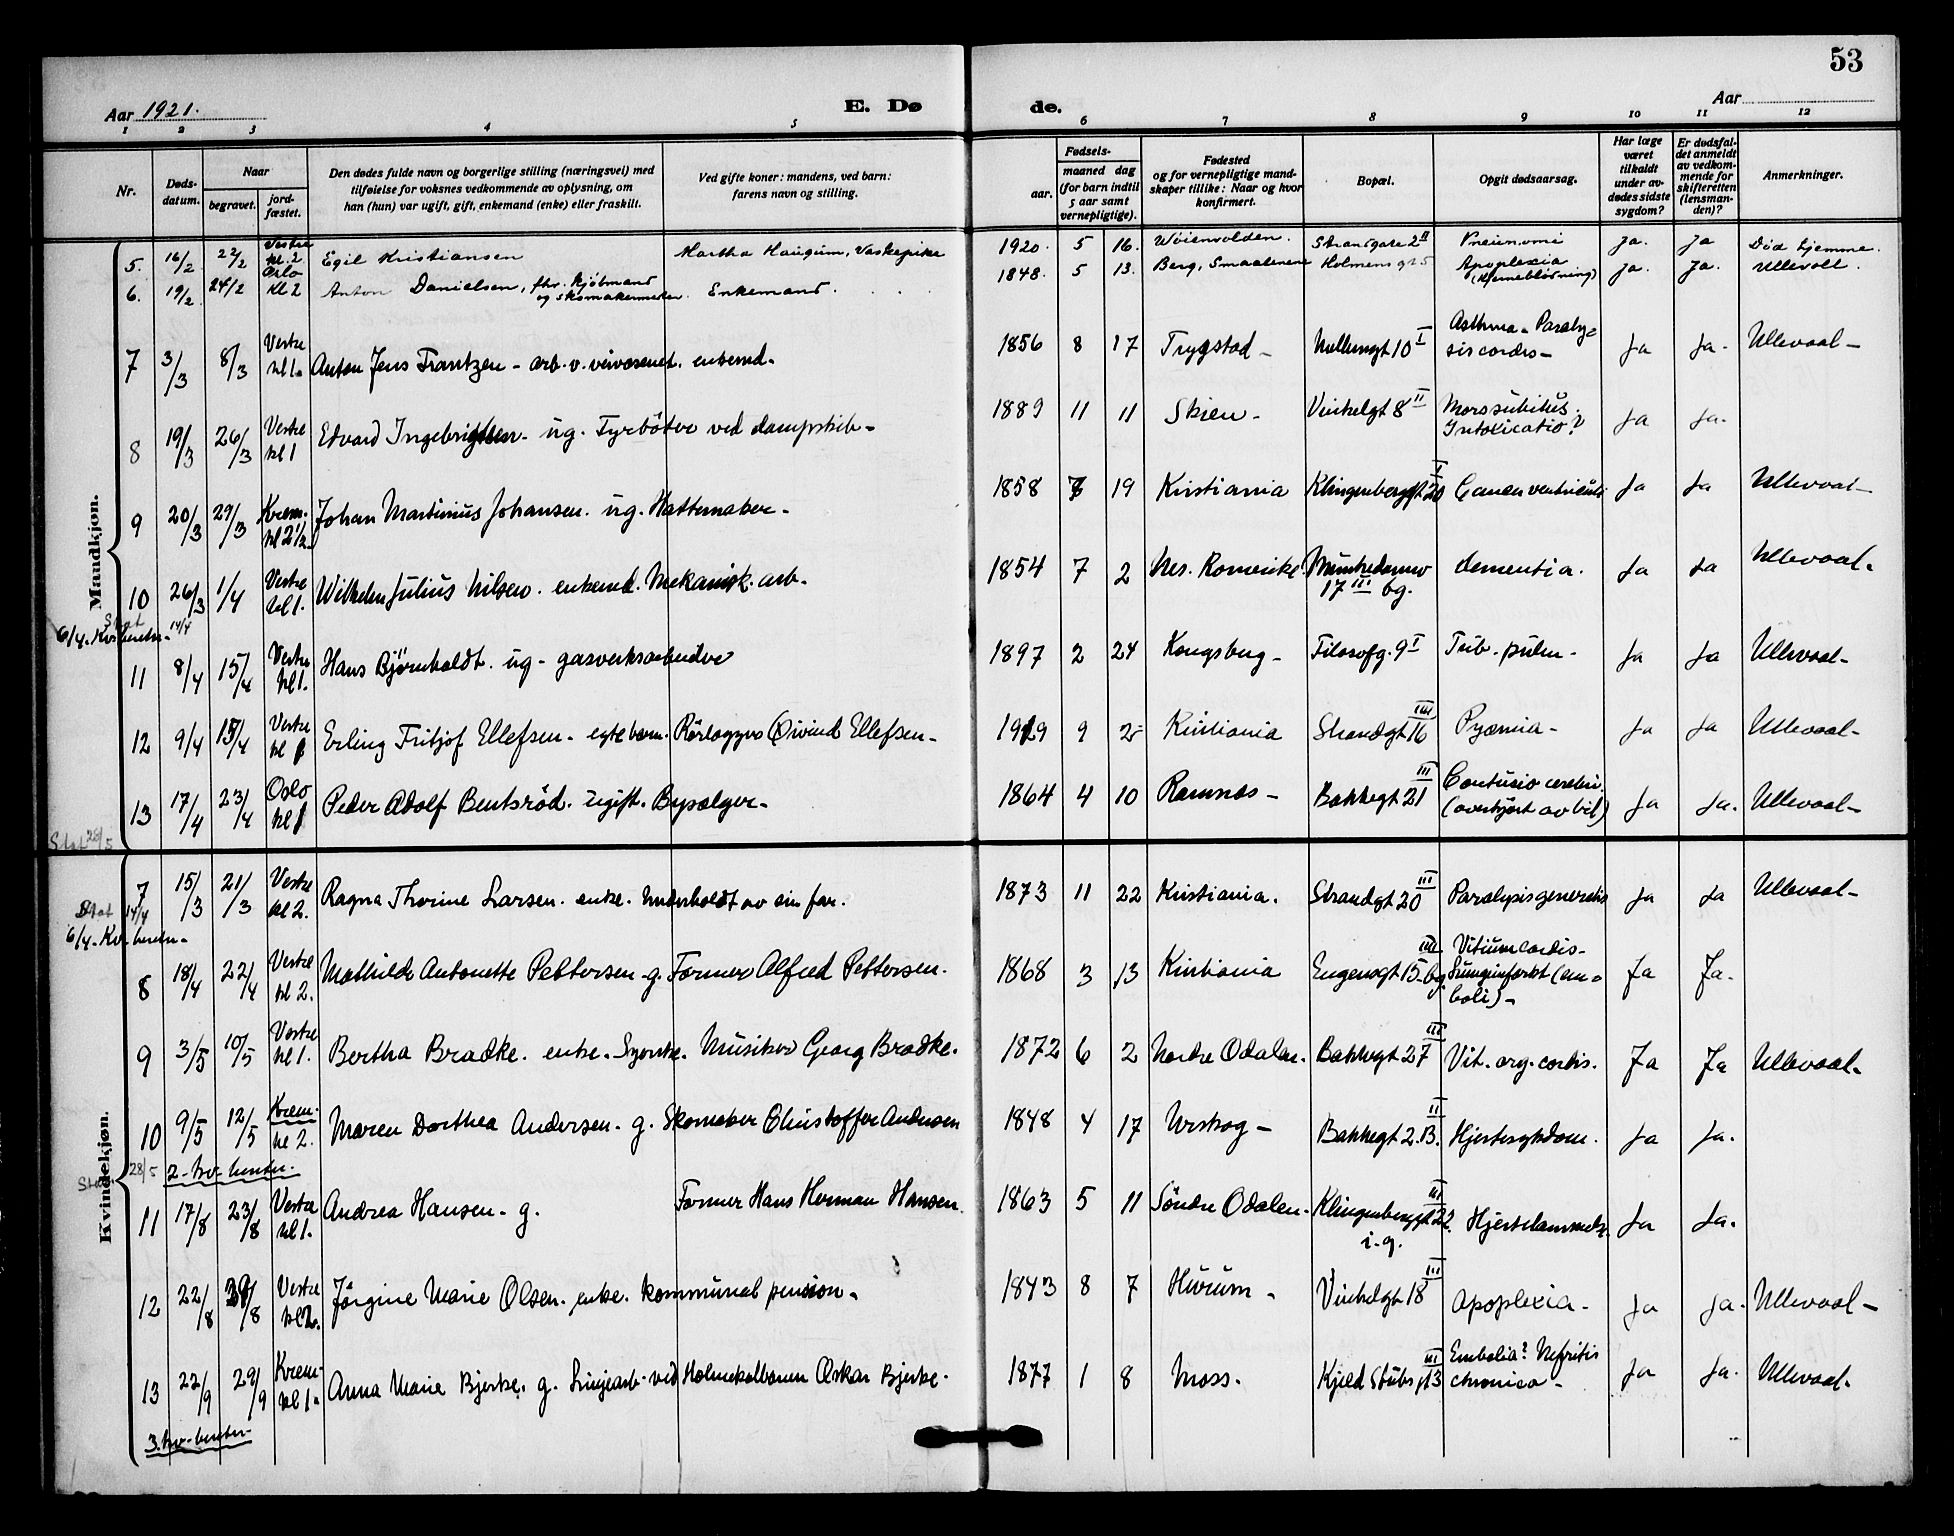 53
Aar 1921.
E. Dø
de.
Aar
1 2 3 4 5 6 7 8 9 10 11 12
Nr.
Døds-
datum.
Naar
begravet.
jord-
fæstet.
Den dødes fulde navn og borgerlige stilling (næringsvei) med
tilføielse for voksnes vedkommende av oplysning, om
han (hun) var ugift, gift, enkemand (enke) eller fraskilt.
Ved gifte koner: mandens, ved barn:
farens navn og stilling.
Fødsels-
aar.
maaned dag
(for barn indtil
5 aar samt
vernepligtige).
Fødested
og for vernepligtige mand-
skaper tillike: Naar og hvor
konfirmert.
Bopæl.
Opgit dødsaarsag.
Har læge
været
tilkaldt
under av-
dødes sidste
sygdom?
Er dødsfal-
det anmeldt
av vedkom-
mende for
skifteretten
(lensman-
den)?
Anmerkninger.
Mandkjøn.
5. 16/2 22/2 Vestre kl. 2 Egil Kristiansen Martha Haugum, Vaskepike 1920. 5 16. Wøienvolden. Strandgate 2 II Pneumoni Ja. Ja Død hjemme.
6. 19/2 24/2 Oslo Kl 2 Anton Danielsen, fhv. kjøbmand og skomakermester. Enkemand. 1848. 5 13. Berg, Smaalenene Holmensgt 5 Apoplexia (hjerneblødning) Ja. Ja. Ullevoll.
7 3/3 8/3 Vestre kl 1. Anton Jens Frantzen - arb. v. veivæsenet. enkemd. 1856 8 17 Trygstad - Munkengt 10 I Asthma - Paralysis cordis - Ja Ja. Ullevaal -
8 19/3 26/3 Vestre kl 1 Edvard Ingebrigtsen - ug. Fyrbøter ved dampskib - 1889 11 11 Skien - Vinkelgt 8 II Mors subitus. Intoxicatio? Ja Ja.
9 20/3 29/3 Krem. kl 2 1/2 Johan Martinius Johansen. ug. Hattemaker - 1858 7 19 Kristiania Klingenberggt 20 I Cancer ventriculi Ja Ja Ullevaal -
10 26/3 1/4 Vestre kl 1. Wilhelm Julius Nilsen. enkemd. Mekanisk. arb. 1854 7 2 Nes. Romerike Munkedamsv 17 III bg. dementia. Ja Ja Ullevaal.
Stat 14/4
6/4. Kv. beretn.
11 8/4 15/4 Vestre kl 1. Hans Bjørnholdt. ug - gasverksarbeider 1897 2 24 Kongsberg - Filosofg. 9 I Tub. pulm - Ja Ja Ullevaal -
12 9/4 15/4 Vestre kl 1 Erling Fritjof Ellefsen - egte barn. Rørlægger Øivind Ellefsen - 1919 9 2 Kristiania Strandgt 16 III Pyæmia - Ja Ja Ullevaal -
13 17/4 23/4 Oslo kl 1 Peder Adolf Bentsrød. ugift. Bysælger - 1864 4 10 Ramnæs - Bakkegt 21 III Contusio cerebri (overkjørt av bil) Ja Ja. Ullevaal -
Stat 28/5
Kvindekjøn.
7 15/3 21/3 Vestre kl 2. Ragna Thorine Larsen. enke. Underholdt av sin far. 1873 11 22 Kristiania. Strandgt 20 III Paralysis generalis Ja Ja Ullevaal -
Stat 14/4
6/4 - Kv. beretn -
8 18/4 22/4 Vestre kl 2. Mathilde Antonette Pettersen - g. Former Alfred Pettersen. 1868 3 13 Kristiania Engensgt 15 - bg. Vitium cordis - Lungeinfarkt (emboli) - Ja Ja.
9 3/5 10/5 Vestre kl 1. Bertha Bradke. enke. Syerske. Musiker Georg Bradke. 1872 6 2 Nordre Odalen. Bakkegt 27 III Vit. org. cordis. Ja Ja Ullevaal.
10 9/5 12/5 Krem. kl 2. Maren Dorthea Andersen - g. Skomaker Christoffer Andersen 1848 4 17 Urskog - Bakkegt 2.B. II Hjertesykdom. Ja Ja.
Stat 28/5 2 - kv. beretn.
11 17/8 23/8 Vestre kl 1. Andrea Hansen - g. Former Hans Herman Hansen. 1863 5 11 Søndre Odalen - Klingenberggt 22 III i. g. Hjertelammelse. Ja Ja.
12 22/8 29/8 Vestre kl 2. Jørgine Marie Olsen. enke. kommunal pension - 1843 8 7 Hurum - Vinkelgt 18 III Apoplexia - Ja Ja. Ullevaal -
13 22/9 29/9 Krem. kl 1. Anna Marie Bjerke. g. Linjearb. ved Holmekolbanen Oskar Bjerke. 1877 1 8 Moss. Kjeld Stubs gt 3 III Embolia? Nefritis chronica - Ja Ja. Ullevaal.
3. kv. beretn -